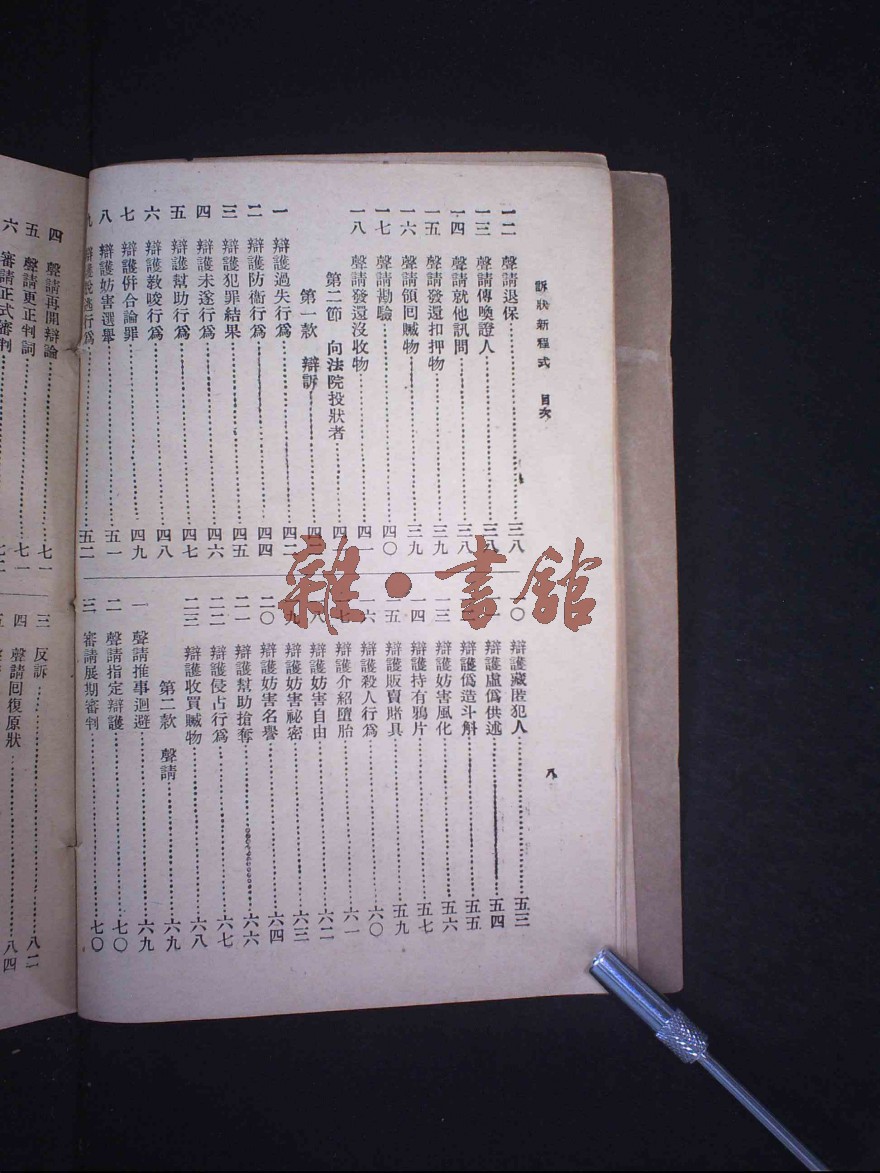 訴狀新程式 目次
八
一二 聲請退保 三八
一三 聲請傳喚證人 三八
一四 聲請就他訊問 三八
一五 聲請發還扣押物 三九
一六 聲請領回贓物 三九
一七 聲請勘驗 四〇
一八 聲請發還沒收物 四一
第二節 向法院投狀者
第一款 辯訴
一 辯護過失行為 四二
二 辯護防衞行為 四四
三 辯護犯罪結果 四五
四 辯護未遂行為 四六
五 辯護幫助行為 四七
六 辯護教唆行為 四八
七 辯護併合論罪 四九
八 辯護妨害選舉 五一
九 辯護脫逃行為 五二
一〇 辯護藏匿犯人 五三
辯護虛偽供述 五四
辯護偽造斗斛 五五
一三 辯護妨害風化 五六
一四 辯護持有鴉片 五七
一五 辯護販賣賭具 五九
一六 辯護殺人行為 六〇
辯護介紹墮胎 六一
辯護妨害自由 六二
辯護妨害祕密 六三
二〇 辯護妨害名譽 六四
二一 辯護幫助搶奪 六六
二二 辯護侵占行為 六七
二三 辯護收買贓物 六八
第二款 聲請 六九
一 聲請推事迴避 六九
二 聲請指定辯護 七〇
三 審請展期審判 七〇
四 聲請再開辯論 七一
五 聲請更正判詞 七一
六 審請正式審判
三 反訴 八二
四 聲請回復原狀 八四
雜·書館